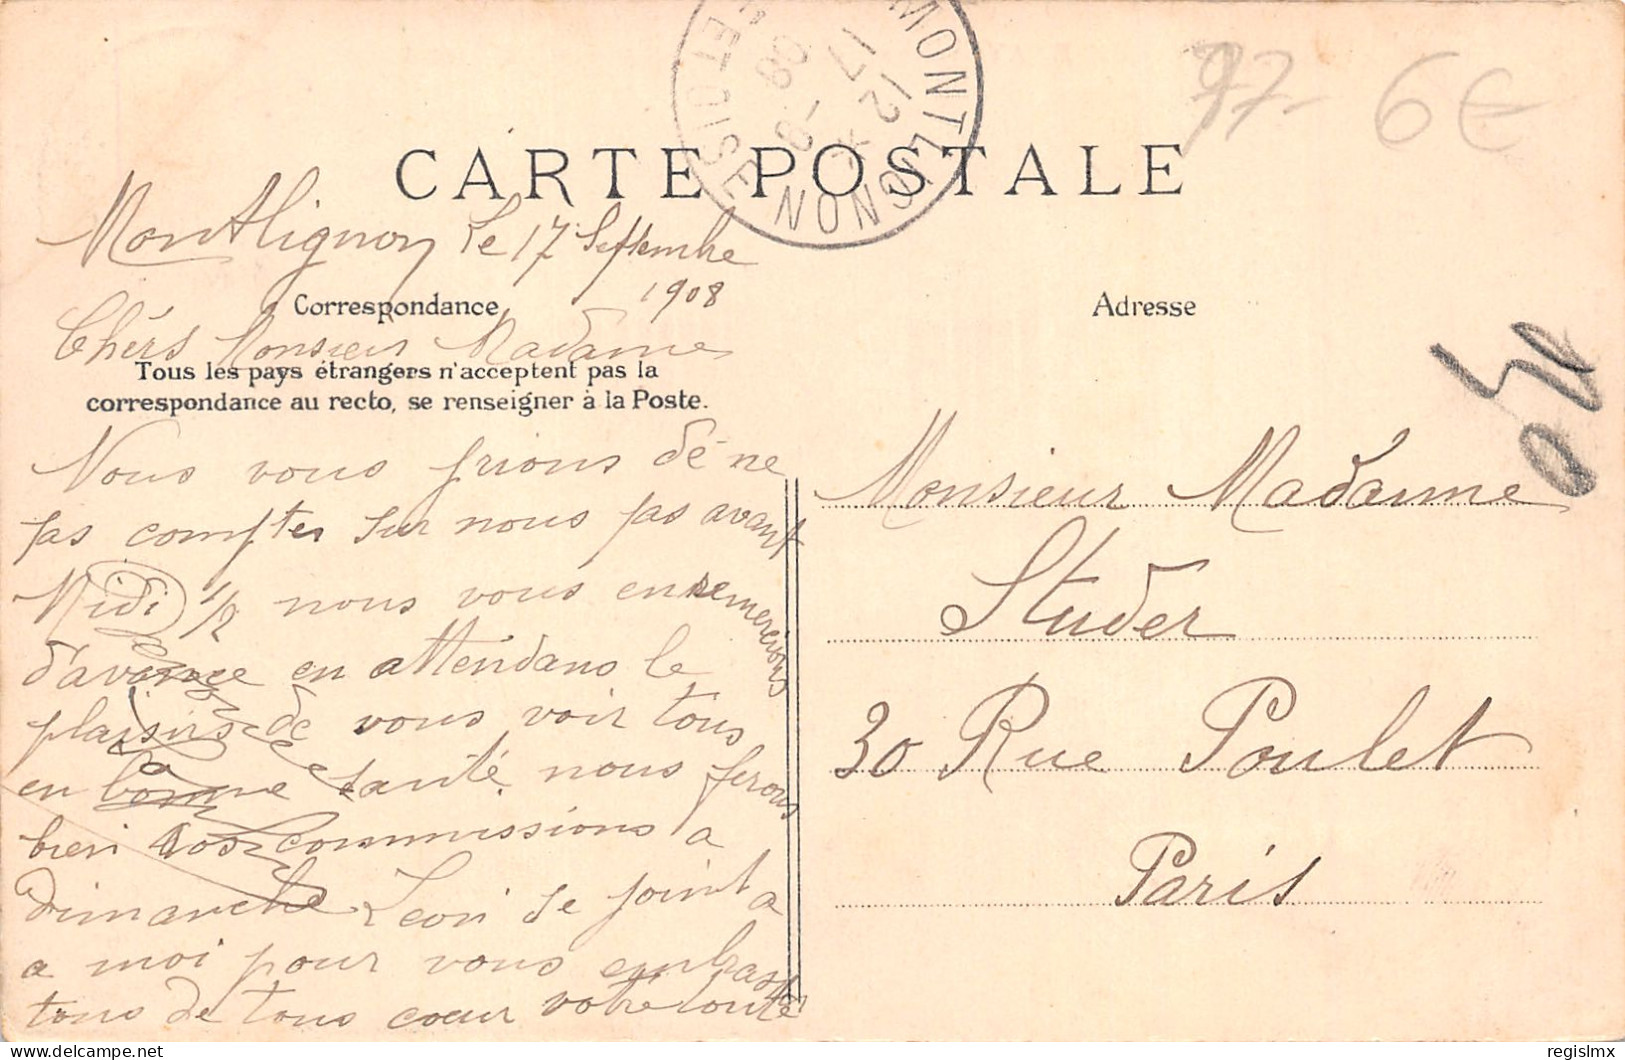 CARTE POSTALE
MONTLIGNON
ET OISE
12
17 - 9
08
97- 6€
Montlignon Le 17 Septembre
1908
Correspondance
Chérs Monsieur Madame
Tous les pays étrangers n'acceptent pas la
correspondance au recto, se renseigner à la Poste.
Nous vous prions dé ne
pas compter sur nous pas avant
Midi 1/2 nous vous en remercions
d'avance en attendans le
plaisirs de vous voir tous
en bonne santé nous ferons
bien vos commissions a
dimanche Leon se joint a
a moi pour vous embrasser
tous de tous coeur votre toute
Adresse
Monsieur Madame
Studer
30 Rue Poulet
Paris
delcampe.net
regislmx